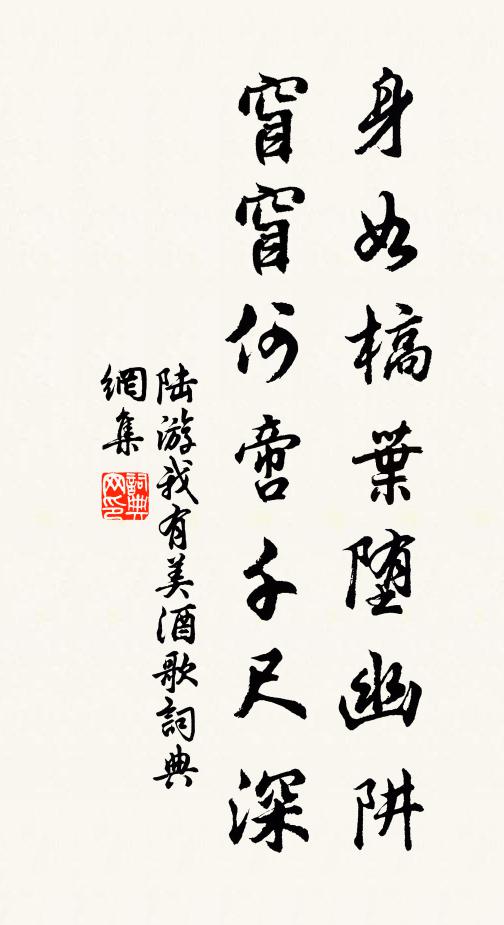 身如槁葉墮幽阱
窅窅何啻千尺深
陆游我有美酒歌詞典
網集
詞典
网印